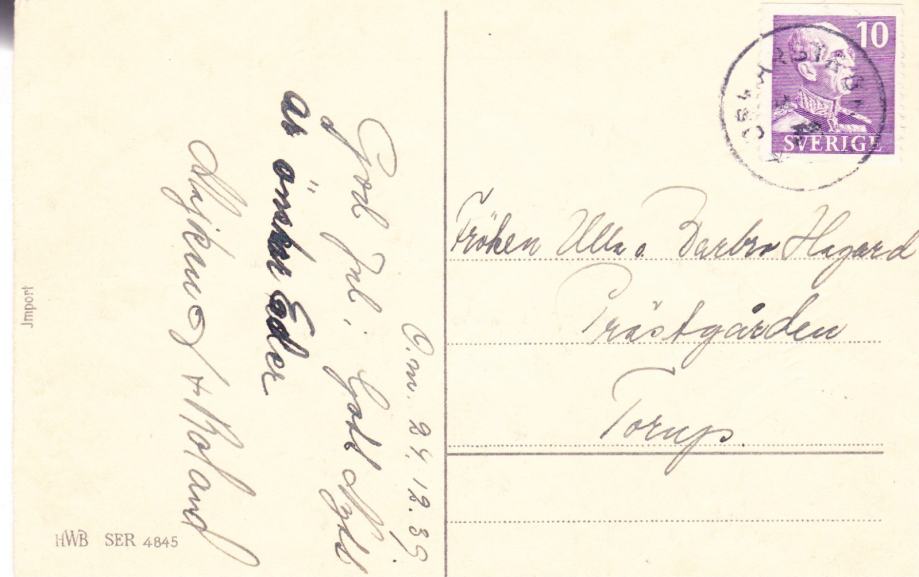 O.m. 24.12.39.
God Jul; Godt Nytt
år önskar Eder
+ Roland
Jmport
HWB SER 4845
10
SVERIGE
Fröken Ulla o. Barbro Hagard
Prästgården
Torup.